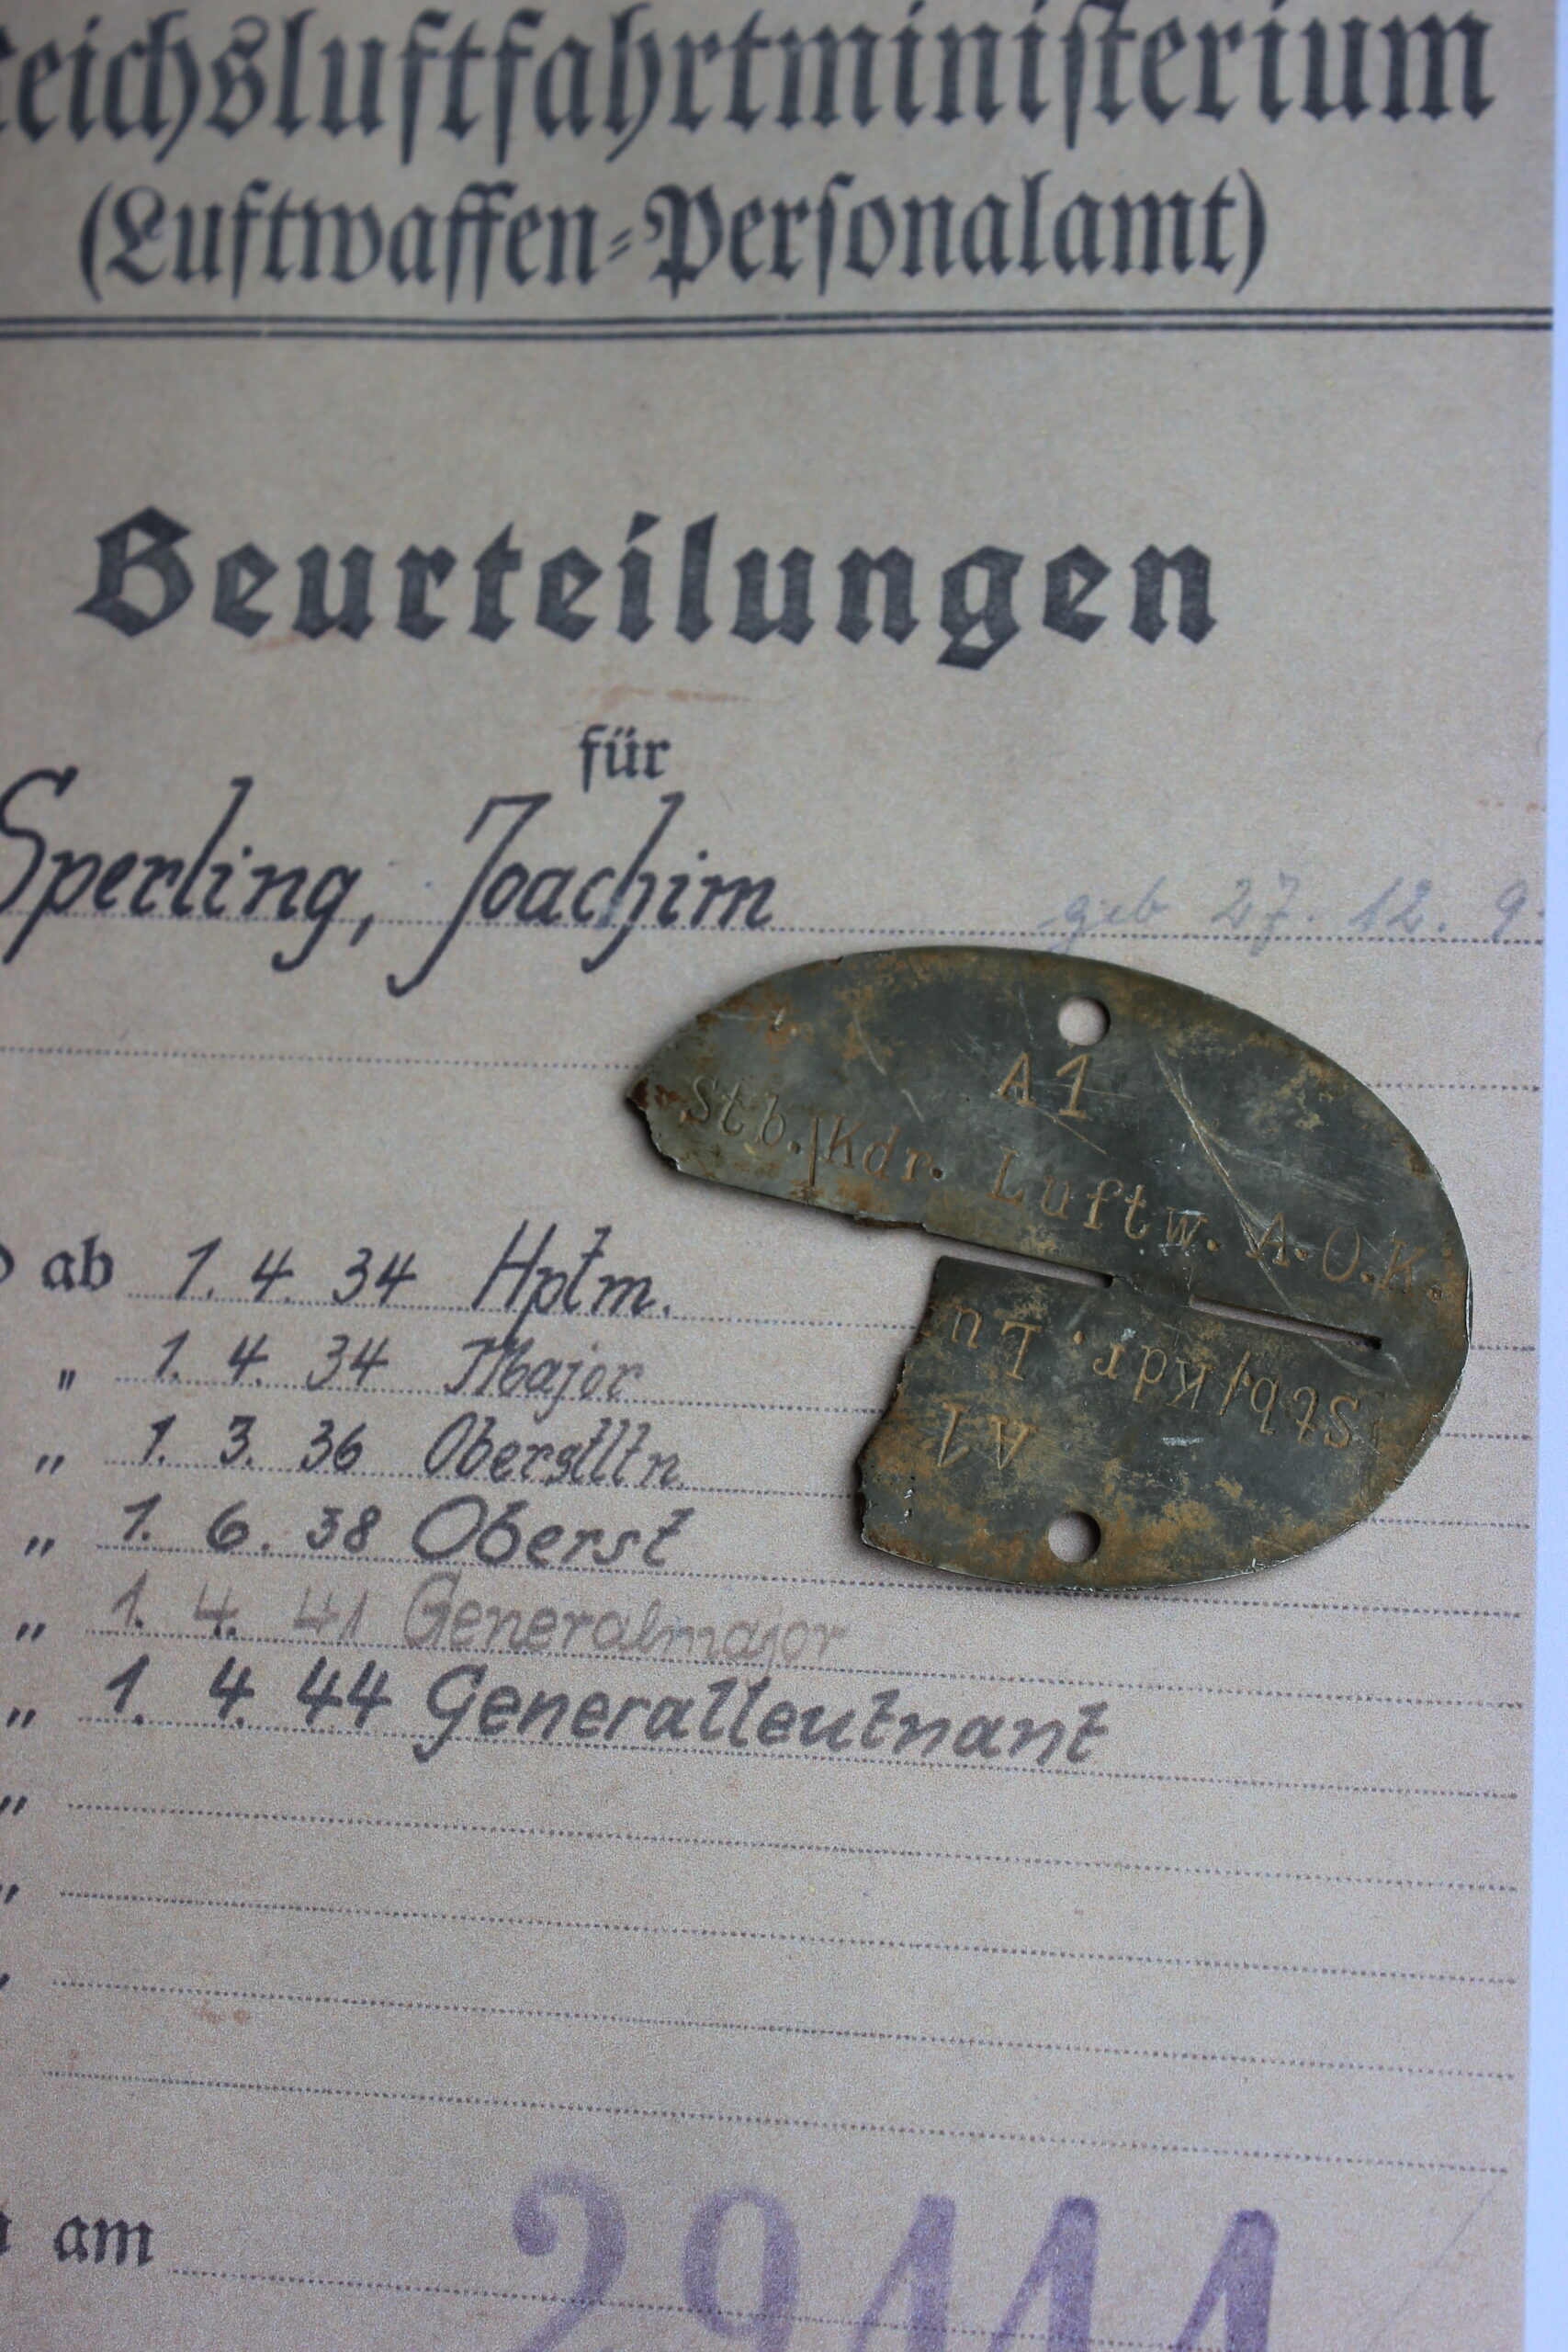 Reichsluftfahrtministerium
(Luftwaffen-Personalamt)
Beurteilungen
für
Sperling, Joachim geb 27. 12. 9
A1
Stb./Kdr. Luftw. A.O.K.
Stb/Kdr. Lu
A1
ab 1. 4. 34 Hptm.
" 1. 4. 34 Major
" 1. 3. 36 Oberstltn.
" 1. 6. 38 Oberst
" 1. 4. 41 Generalmajor
" 1. 4. 44 Generalleutnant
"
"
"
am
29111